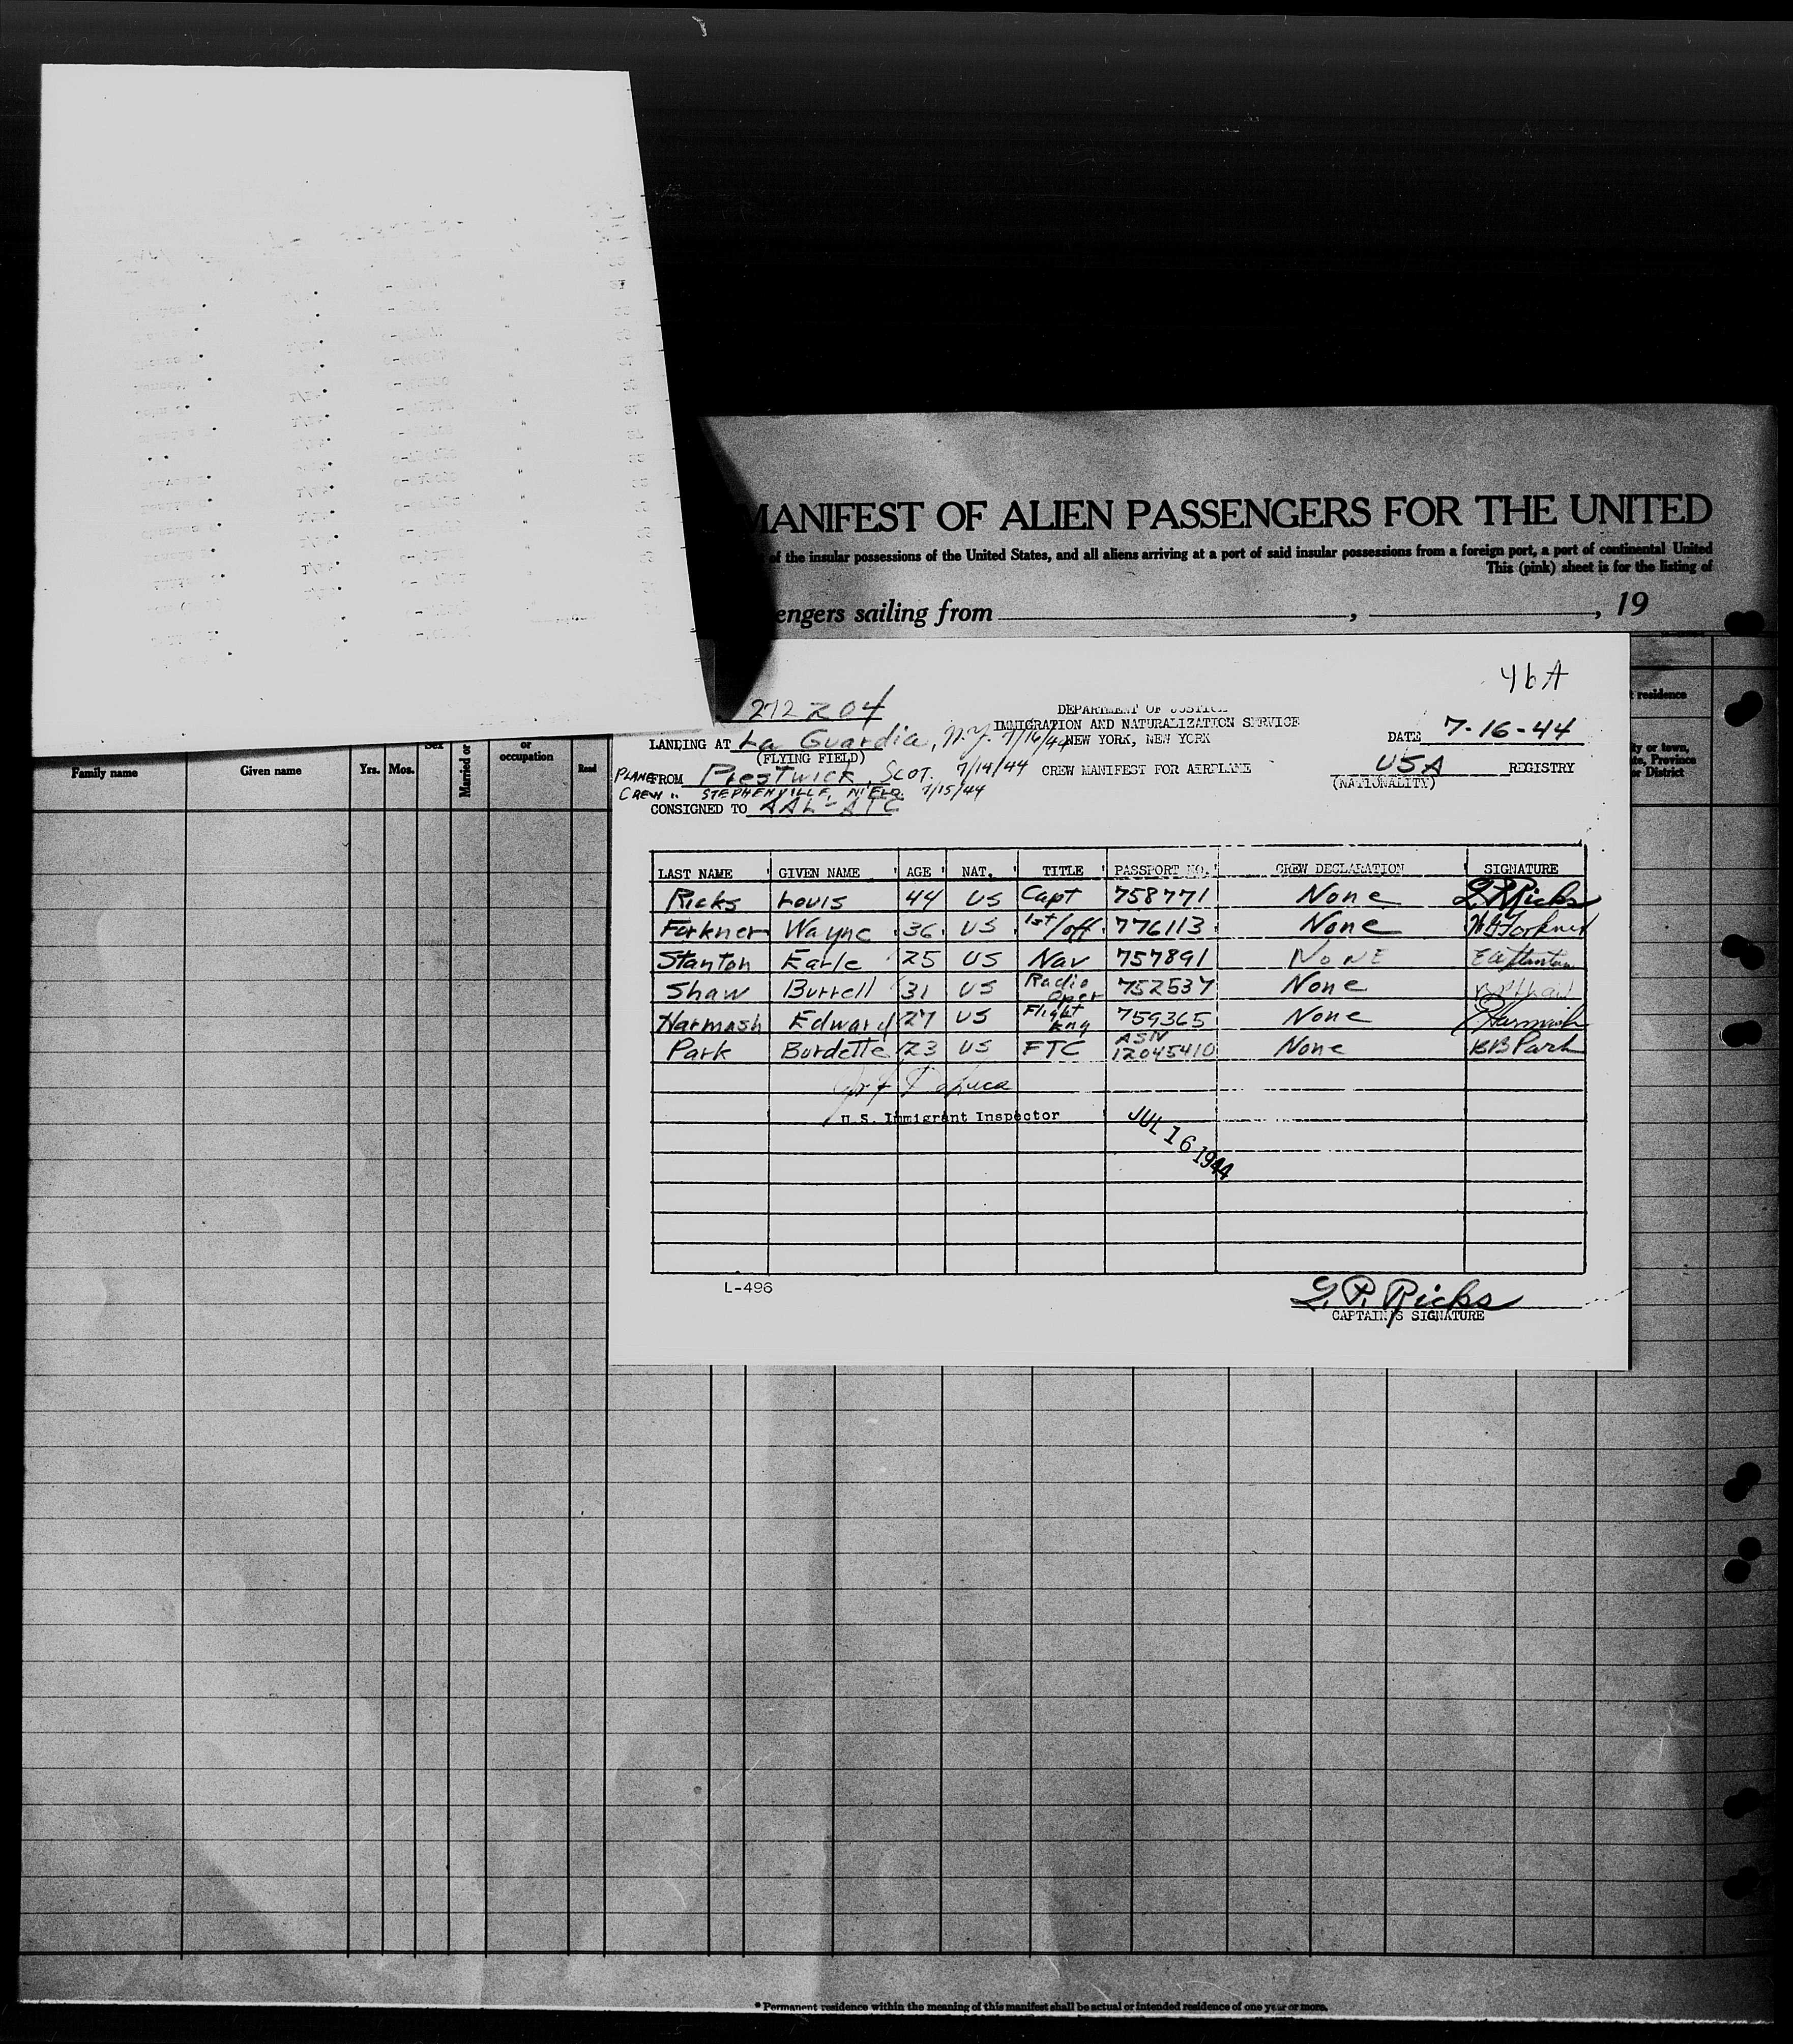 MANIFEST OF ALIEN PASSENGERS FOR THE UNITED
of the insular possessions of the United States, and all aliens arriving at a port of said insular possessions from a foreign port, a port of continental United
This (pink) sheet is for the listing of
engers sailing from , , 19
46A
272204
DEPARTMENT OF JUSTICE
IMMIGRATION AND NATURALIZATION SERVICE
LANDING AT La Guardia, N.Y. 7/16/44 NEW YORK, NEW YORK DATE 7-16-44
(FLYING FIELD)
PLANE FROM Prestwick, Scot. 7/14/44 CREW MANIFEST FOR AIRPLANE USA REGISTRY
(NATIONALITY)
CREW " STEPHENVILLE, NFLD. 7/15/44
CONSIGNED TO AAL-ATC
LAST NAME GIVEN NAME AGE NAT. TITLE PASSPORT NO. CREW DECLARATION SIGNATURE
Ricks Louis 44 US Capt 758771 None L P Ricks
Forkner Wayne 36 US 1st/off 776113 None Forkner
Stanton Earle 25 US Nav 757891 NONE E A Stanton
Shaw Burrell 31 US Radio Oper 752537 None
Harmash Edward 27 US Flight Eng 759365 None E Harmash
Park Burdette 23 US FTC ASN 12045410 None B B Park
U.S. Immigrant Inspector
JUL 16 1944
L-496
L. P. Ricks
CAPTAIN'S SIGNATURE
Family name Given name Yrs. Mos. Sex Married or or occupation Read
residence
ty or town,
te, Province
or District
* Permanent residence within the meaning of this manifest shall be actual or intended residence of one year or more.